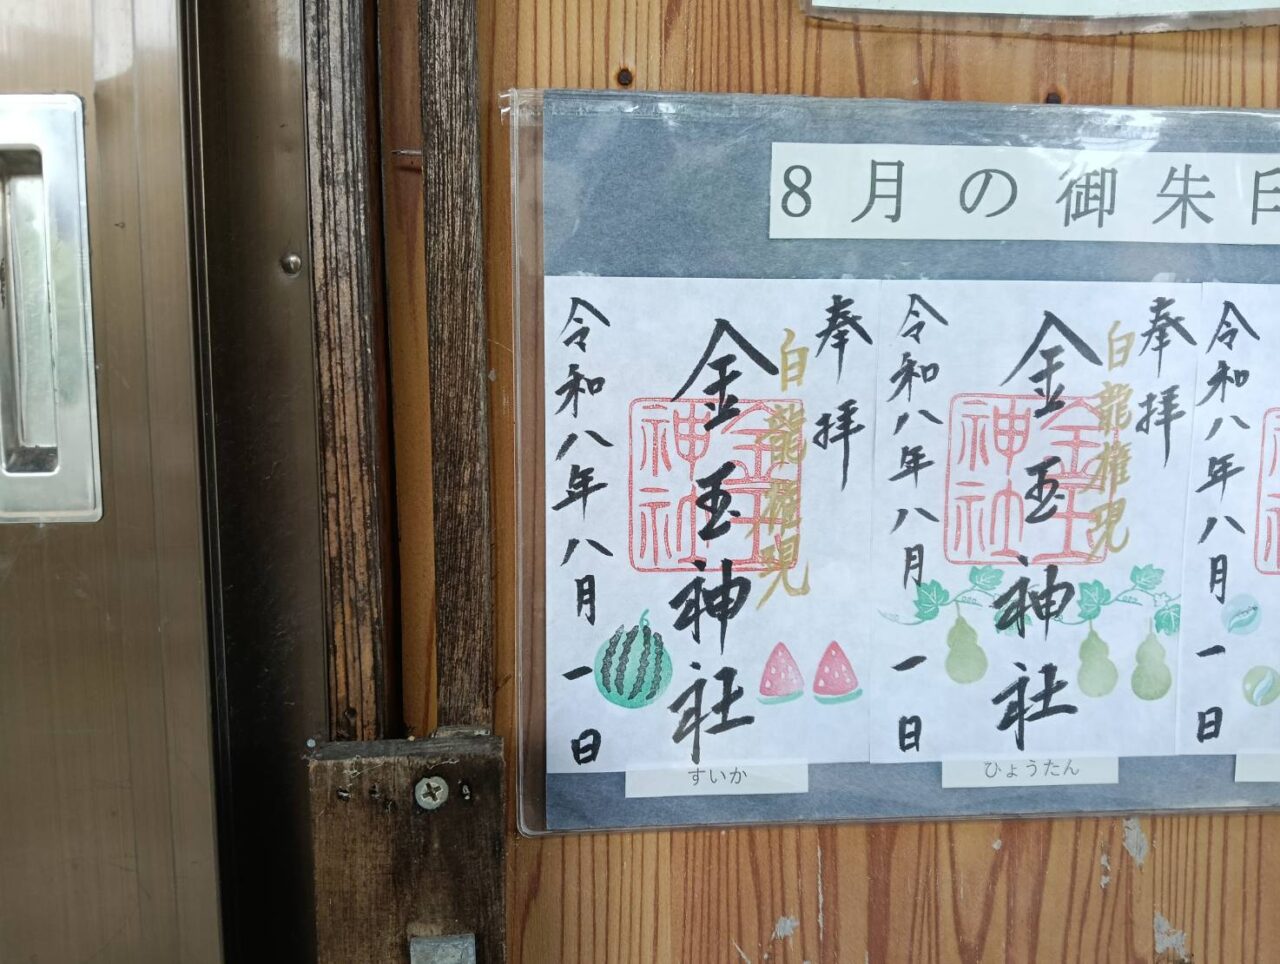 8月の御朱印
奉拝
白龍権現
金玉神社
金玉神社
令和八年八月一日
すいか
奉拝
白龍権現
金玉神社
金玉神社
令和八年八月一日
ひょうたん
令和八年八月一日